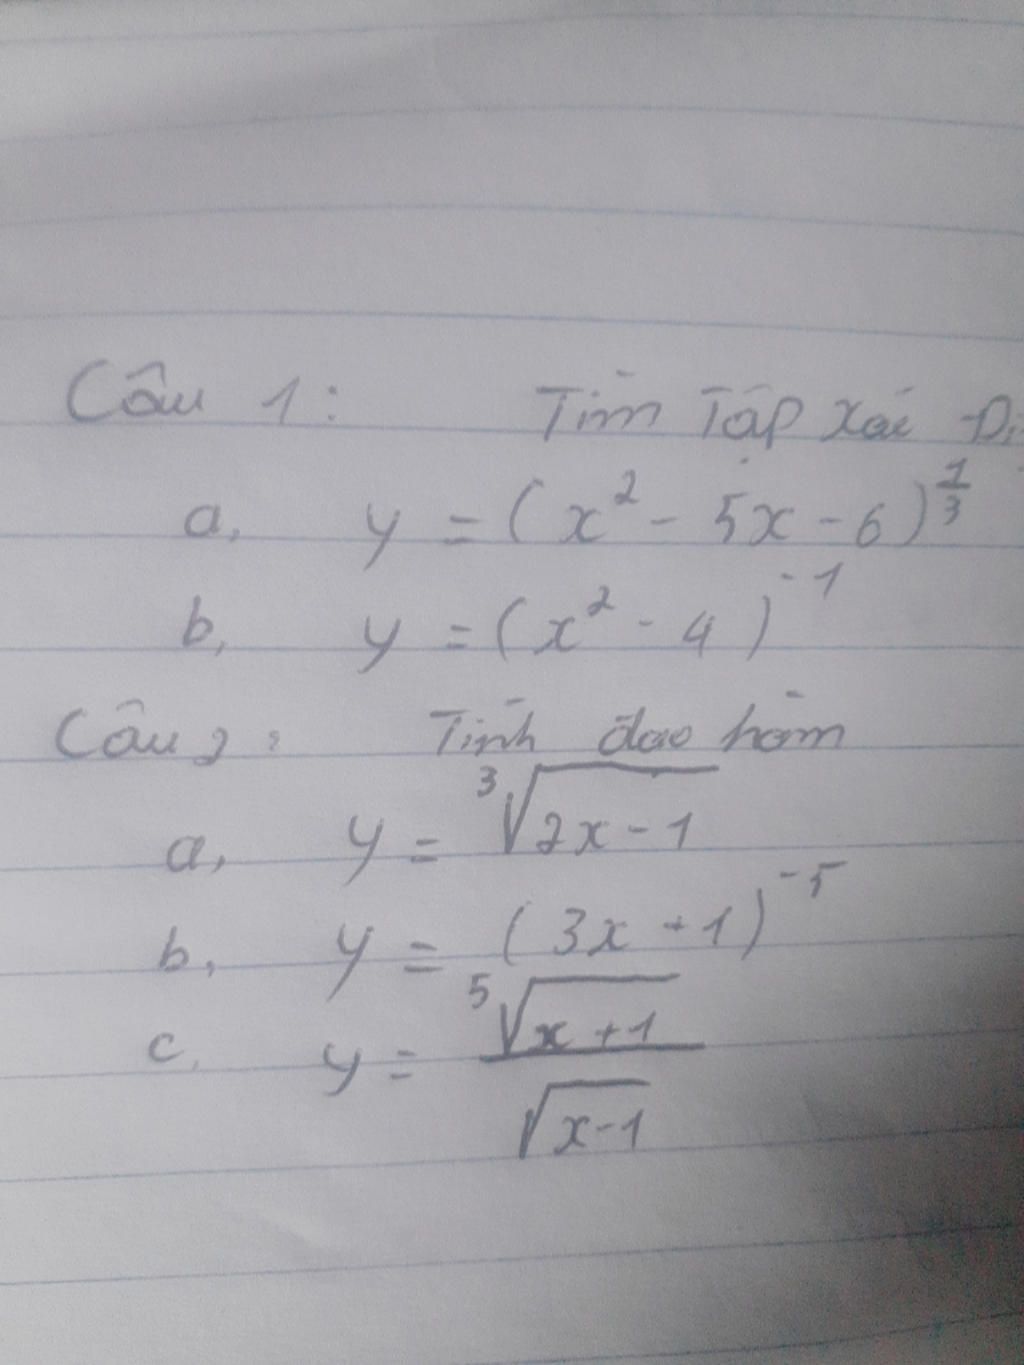 Câu 1: Tìm Tập xác Đị
a, y = (x² - 5x - 6)^{\frac{1}{3}}
b, y = (x² - 4)^{-1}
Câu 2: Tính đạo hàm
a, y = \sqrt[3]{2x - 1}
b, y = (3x + 1)^{-5}
c, y = \frac{\sqrt[5]{x + 1}}{\sqrt{x - 1}}